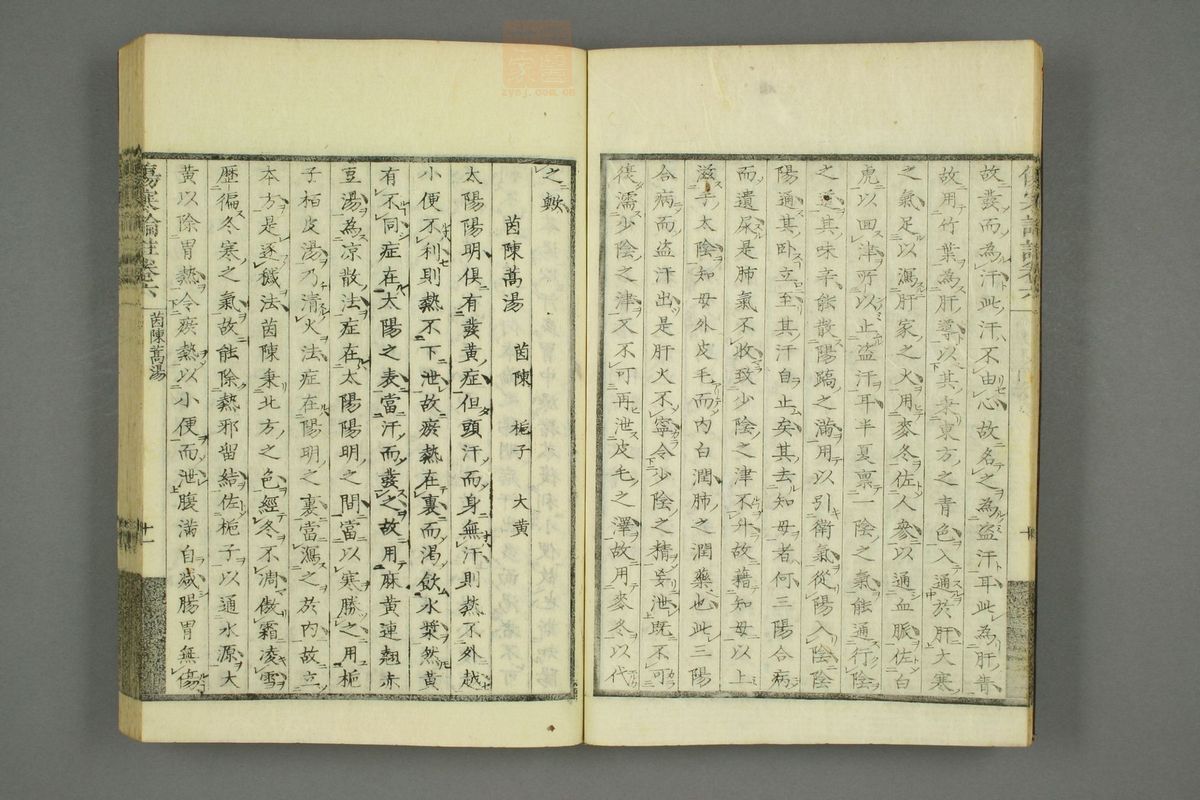 故發而為汗此汗不由心故名之為盜汗耳此為肝膽
故用竹葉為肝導以其東方之青色入通於肝大寒
之氣足以瀉肝家之火用麥冬佐人參以通血脈佐白
虎以回津所以止盜汗耳半夏稟一陰之氣能通行陰
之其味辛能散陽蹻之滿用以引衛氣從陽入陰陰
陽通其臥立至其汗自止矣其去知母者何三陽合病
而遺尿是肺氣不收致少陰之津不升故藉知母以上
滋手太陰知母外皮毛而內白潤肺之潤藥也此三陽
合病而盜汗出是肝火不寧令少陰之精妄泄既不可
復濡少陰之津又不可再泄皮毛之澤故用麥冬以代
之歟
茵陳蒿湯 茵陳 梔子 大黃
太陽陽明俱有發黃症但頭汗而身無汗則熱不外越
小便不利則熱不下泄故瘀熱在裏而渴飲水漿然黃
有不同症在太陽之表當汗而發之故用麻黃連翹赤
豆湯為涼散法症在太陽陽明之間當以寒勝之用梔
子柏皮湯乃清火法症在陽明之裏當瀉之於內故立
本方是逐穢法茵陳秉北方之色經冬不凋傲霜凌雪
歷徧冬寒之氣故能除熱邪留結佐梔子以通水源大
黃以除胃熱令瘀熱以小便而泄腹滿自減腸胃無傷
傷寒論註卷六 茵陳蒿湯 十一